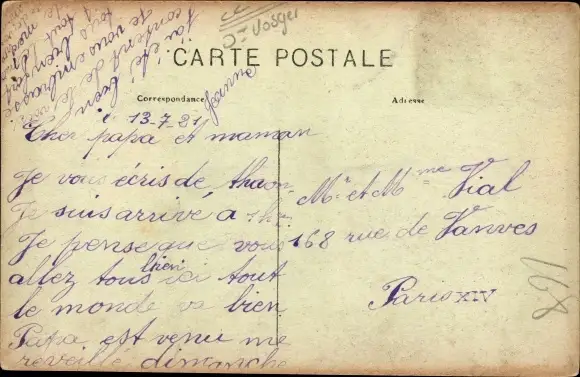 Dt Vosges
CARTE POSTALE
Correspondance
Adresse
13-7-21
Cher papa et maman
Je vous écris de thaon
Je suis arrivé à
Je pense que vous
allez tous bien ici tout
le monde va bien
Papa est venu me
réveillé dimanche
j'ai été
content de
je vous embrasse
tous bien
Mr et Mme Vial
168 rue de Vanves
Paris XIV
168